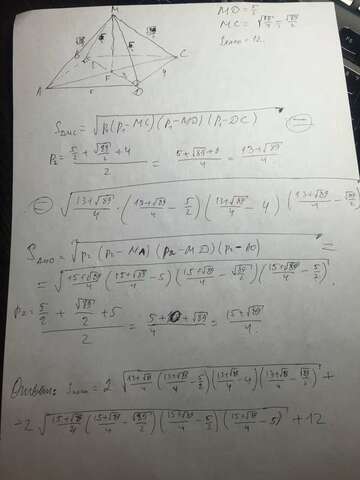 MD = 5/2
MC = √89/4 = √89/2
Sосн = 12.
M
A
B
C
D
F
5
4
S_DMC = √(p₁(p₁-MC)(p₁-MD)(p₁-DC)) =
p₁ = (5/2 + √89/2 + 4)/2 = (5+√89+8)/4 = (13+√89)/4
= √((13+√89)/4 · ((13+√89)/4 - 5/2)((13+√89)/4 - 4)((13+√89)/4 - √89/2))
S_AMD = √(p₂(p₂-MA)(p₂-MD)(p₂-AD)) =
= √((15+√89)/4 ((15+√89)/4 - 5)((15+√89)/4 - √89/2)((15+√89)/4 - 5/2))
p₂ = (5/2 + √89/2 + 5)/2 = (5+10+√89)/4 = (15+√89)/4
Ответ: Sполн = 2√((13+√89)/4 ((13+√89)/4 - 5/2)((13+√89)/4 - 4)((13+√89)/4 - √89/2)) +
+2√((15+√89)/4 ((15+√89)/4 - √89/2)((15+√89)/4 - 5/2)((15+√89)/4 - 5)) + 12